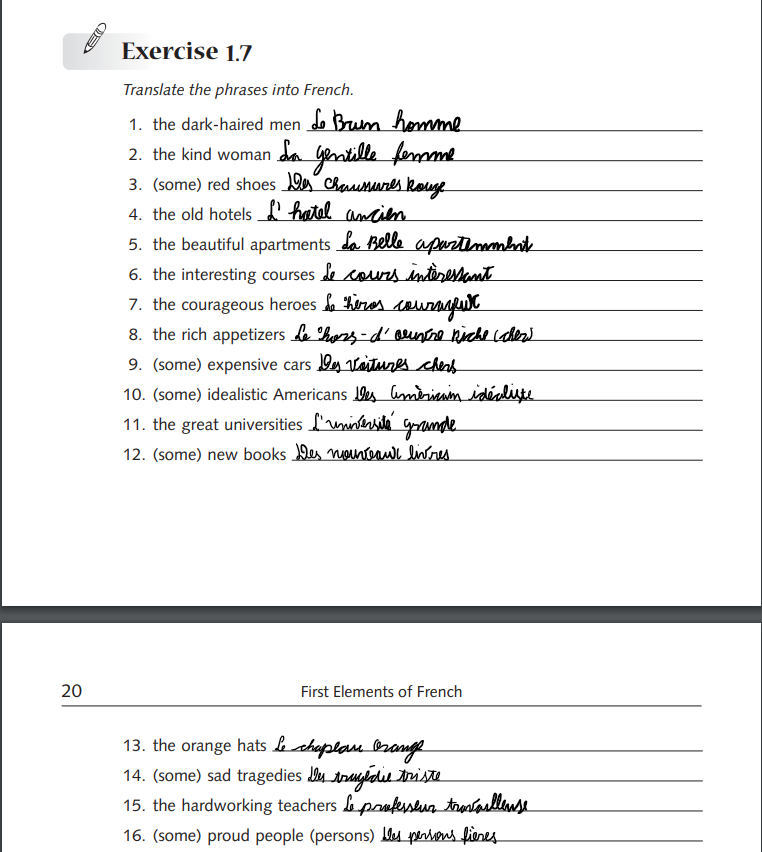 Exercise 1.7
Translate the phrases into French.
1. the dark-haired men Le Brun homme
2. the kind woman La gentille femme
3. (some) red shoes Des chaussures Rouge
4. the old hotels L' hotel ancien
5. the beautiful apartments La Belle apartemment
6. the interesting courses Le cours intèressant
7. the courageous heroes Le héros courageux
8. the rich appetizers Le hors-d' oeuvre Riche (cher)
9. (some) expensive cars Des Voitures chers
10. (some) idealistic Americans Des Amèricain idéaliste
11. the great universities L'université grande
12. (some) new books Des nouveaux livres
20 First Elements of French
13. the orange hats Le chapeau Orange
14. (some) sad tragedies Des tragédie triste
15. the hardworking teachers Le professeur travailleuse
16. (some) proud people (persons) Des persons fieres